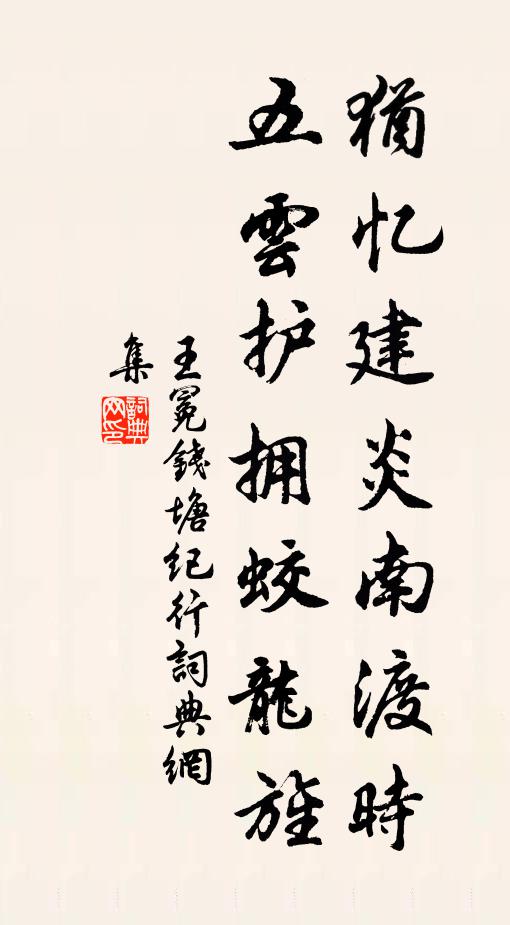 猶忆建炎南渡時
五雲护拥蛟龍旌
王冕錢塘纪行詞典網
集
詞典
网印